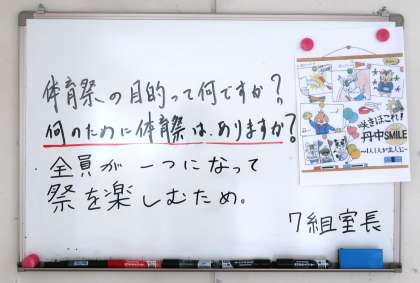 体育祭の目的って何ですか?
何のために体育祭は、ありますか?
全員が一つになって
祭を楽しむため。
7組室長
咲きほこれ!
丹中SMILE